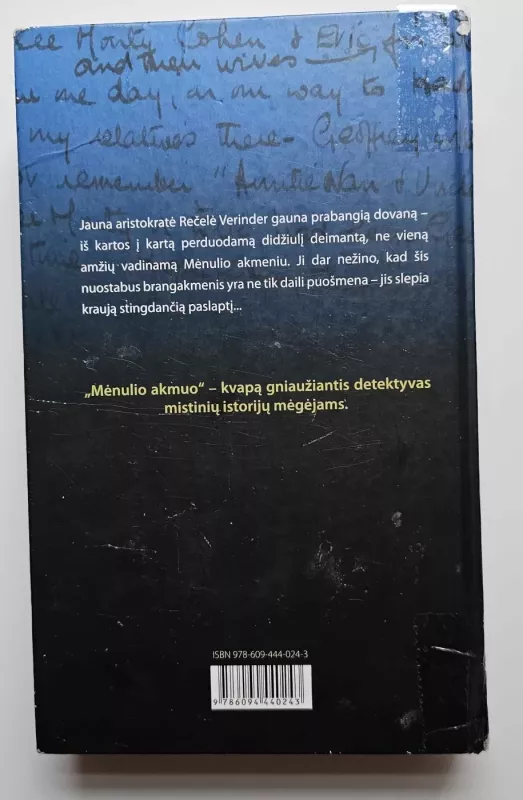 Monty Cohen & Eric,
and their wives
me day, on our way to
my relatives there - Geoffrey
remember "Auntie Nan &
Jauna aristokratė Rečelė Verinder gauna prabangią dovaną –
iš kartos į kartą perduodamą didžiulį deimantą, ne vieną
amžių vadinamą Mėnulio akmeniu. Ji dar nežino, kad šis
nuostabus brangakmenis yra ne tik daili puošmena – jis slepia
kraują stingdančią paslaptį...
„Mėnulio akmuo“ – kvapą gniaužiantis detektyvas
mistinių istorijų mėgėjams.
ISBN 978-609-444-024-3
9 786094 440243